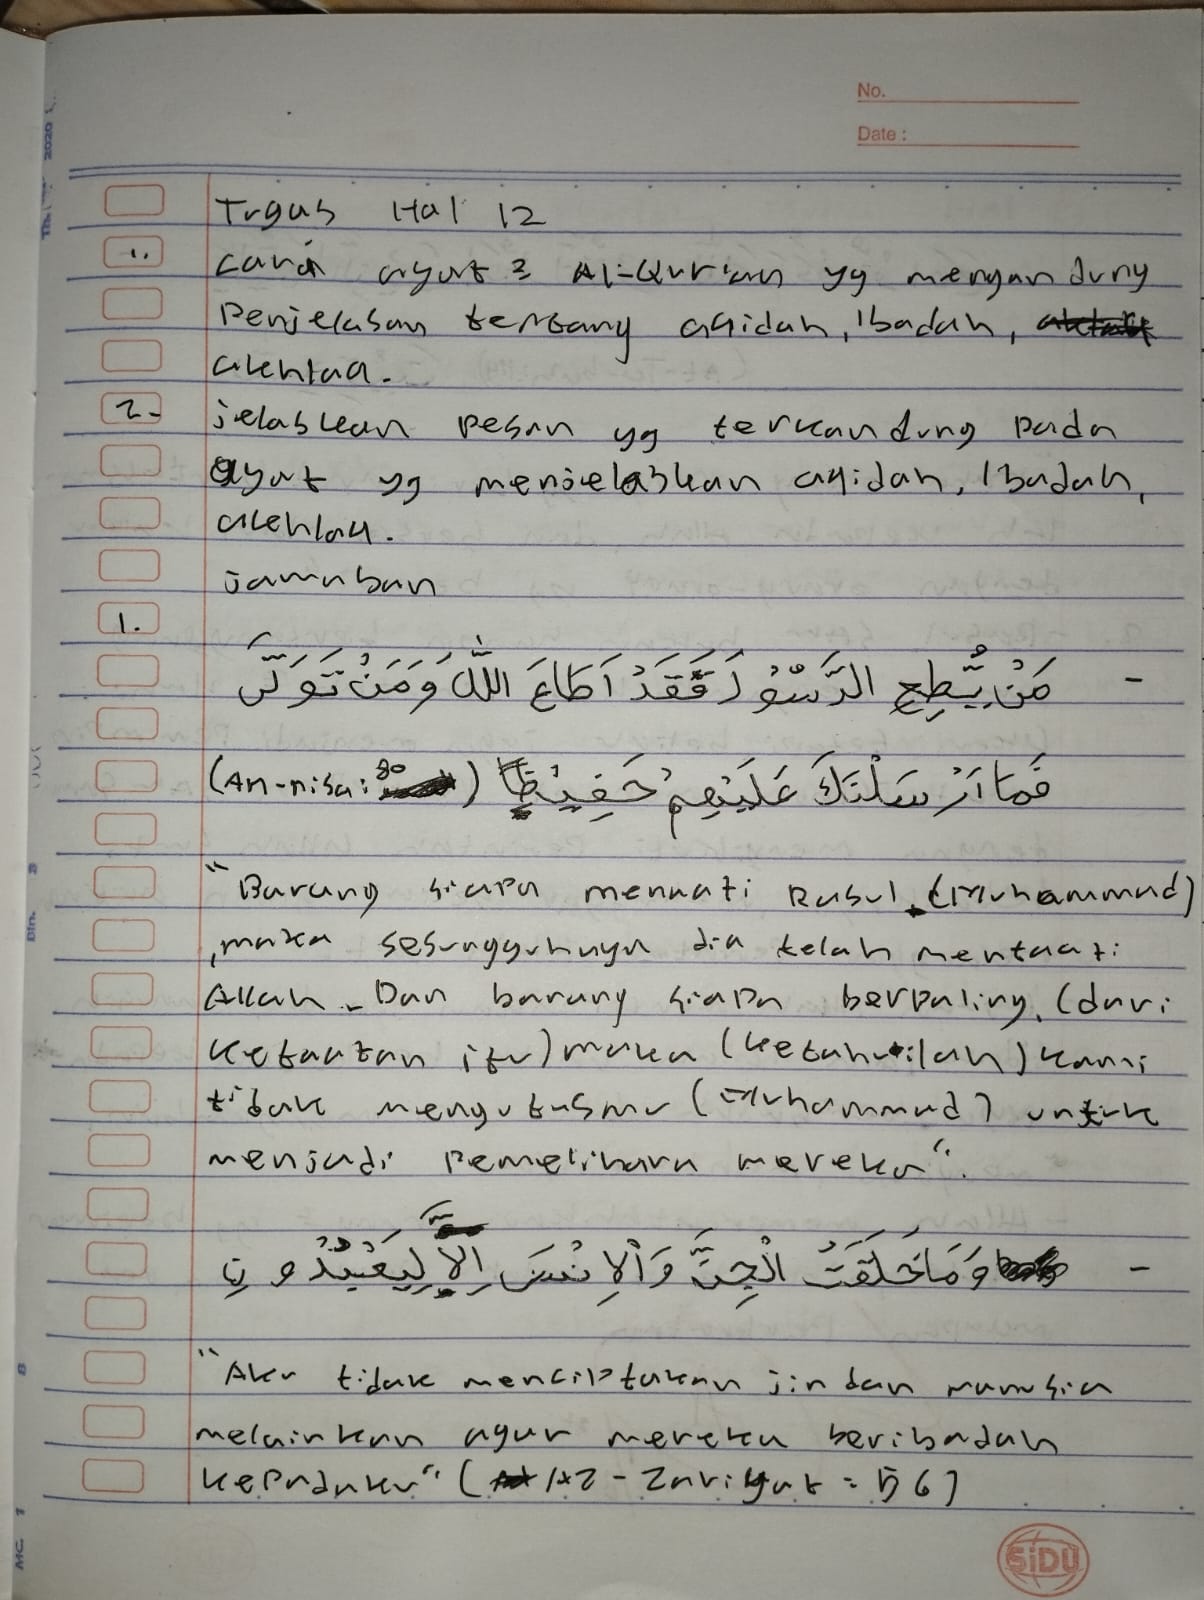 No.
Date :
Tugas Hal 12
1. carà ayat² Al-Qur'an yg mengandung
Penjelasan tentang aqidah, Ibadah,
akhlaq.
2. jelaskan pesan yg terkandung pada
ayat yg menjelaskan aqidah, Ibadah,
akhlaq.
jawaban
1.
- مَنْ يُّطِعِ الرَّسُوْلَ فَقَدْ اَطَاعَ اللّٰهَ وَمَنْ تَوَلّٰى
فَمَا اَرْسَلْنٰكَ عَلَيْهِمْ حَفِيْظًا (An-nisa: 80)
"Barang siapa mentaati Rasul (Muhammad)
,maka sesungguhnya dia telah mentaati
Allah. Dan barang siapa berpaling (dari
ketaatan itu) maka (ketahuilah) kami
tidak mengutusmu (Muhammad) untuk
menjadi pemelihara mereka".
- وَمَا خَلَقْتُ الْجِنَّ وَالْاِنْسَ اِلَّا لِيَعْبُدُوْنِ
"Aku tidak menciptakan jin dan manusia
melainkan agar mereka beribadah
kepadaku" (Az-Zariyat : 56)
SiDU